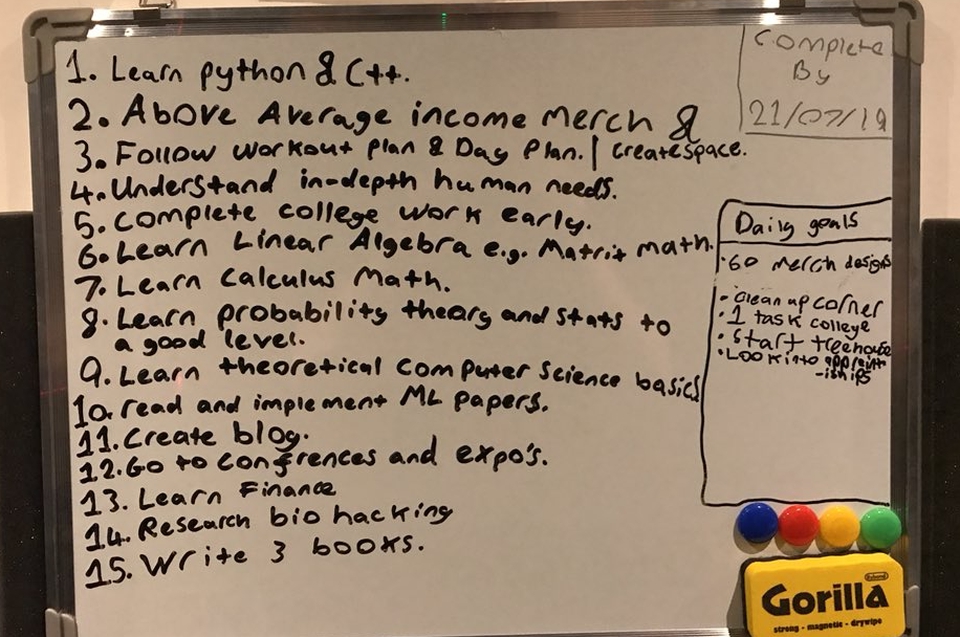 1. Learn python & C++.
2. Above Average income merch &
3. Follow workout plan & Day Plan. | createspace.
4. Understand in-depth human needs.
5. Complete college work early.
6. Learn Linear Algebra e.g. Matrix math.
7. Learn Calculus Math.
8. Learn probability theory and stats to
a good level.
9. Learn theoretical computer science basics
10. read and implement ML papers.
11. Create blog.
12. Go to confrences and expo's.
13. Learn Finance
14. Research bio hacking
15. Write 3 books.
Complete
By
21/07/19
Daily goals
· 60 merch designs
· clean up corner
· 1 task college
· Start treehouse
· Look into apprint
-iships
Gorilla
strong - magnetic - drywipe